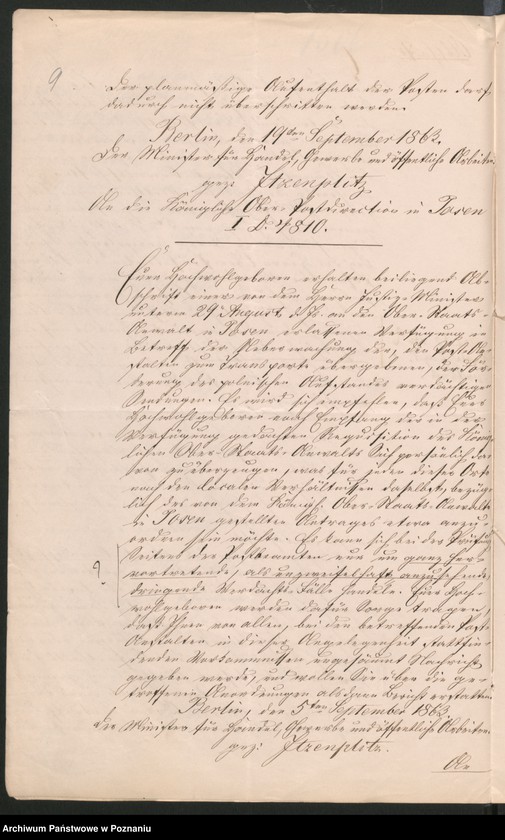 9
Der planmäßige Aufenthalt der Posten darf
dadurch nicht überschritten werden.
Berlin, den 19ten September 1863.
Der Minister für Handel, Gewerbe und öffentliche Arbeiten
gez: Itzenplitz
An die Königliche Ober-Postdirection in Posen
I D. 4810.
Euer Hochwohlgeboren erhalten beiliegend Ab-
schrift einer von dem Herrn Justiz-Minister
unterm 29 August d. J. an den Ober-Staats-
Anwalt in Posen erlassenen Verfügung in
Betreff der Ueberwachung der, den Post-An-
stalten zum Transporte übergebenen, der För-
derung des polnischen Aufstandes verdächtigen
Sendungen. Es wird sich empfehlen, daß Euer
Hochwohlgeboren nach Empfang der in der
Verfügung gedachten Requisition des König-
lichen Ober-Staats-Anwalts Sich persönlich da-
von zu überzeugen, was für jeden dieser Orte
nach den localen Verhältnissen daselbst, bezüg-
lich des von dem Königl. Ober-Staats-Anwalte
in Posen gestellten Antrages etwa anzu-
ordnen sein möchte. Es kann sich bei der Prüfung
Seitens der Postbeamten nur um ganz her-
? vortretende, als unzweifelhaft anzusehende
dringende Verdachts-Fälle handeln. Euer Hoch-
wohlgeboren werden dafür Sorge tragen,
daß Ihnen von allen, bei den betreffenden Post-
Anstalten in dieser Angelegenheit stattfin-
denden Vorkommnissen ungesäumt Nachricht
gegeben werde, und wollen Sie über die ge-
troffenen Anordnungen alsdann Bericht erstatten.
Berlin, den 5ten September 1863
Der Minister für Handel, Gewerbe und öffentliche Arbeiten
gez: Itzenplitz.
An
Archiwum Państwowe w Poznaniu